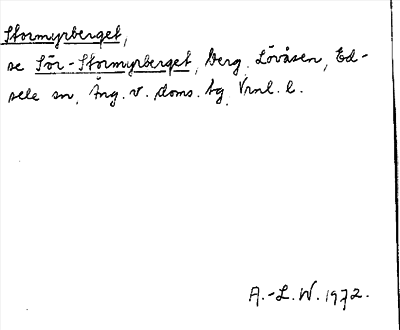 Stormyrberget,
se Sör-Stormyrberget, berg, Lövåsen, Ed-
sele sn, Ång. v. doms. tg, Vrnl. l.
A.-L. W. 1972.